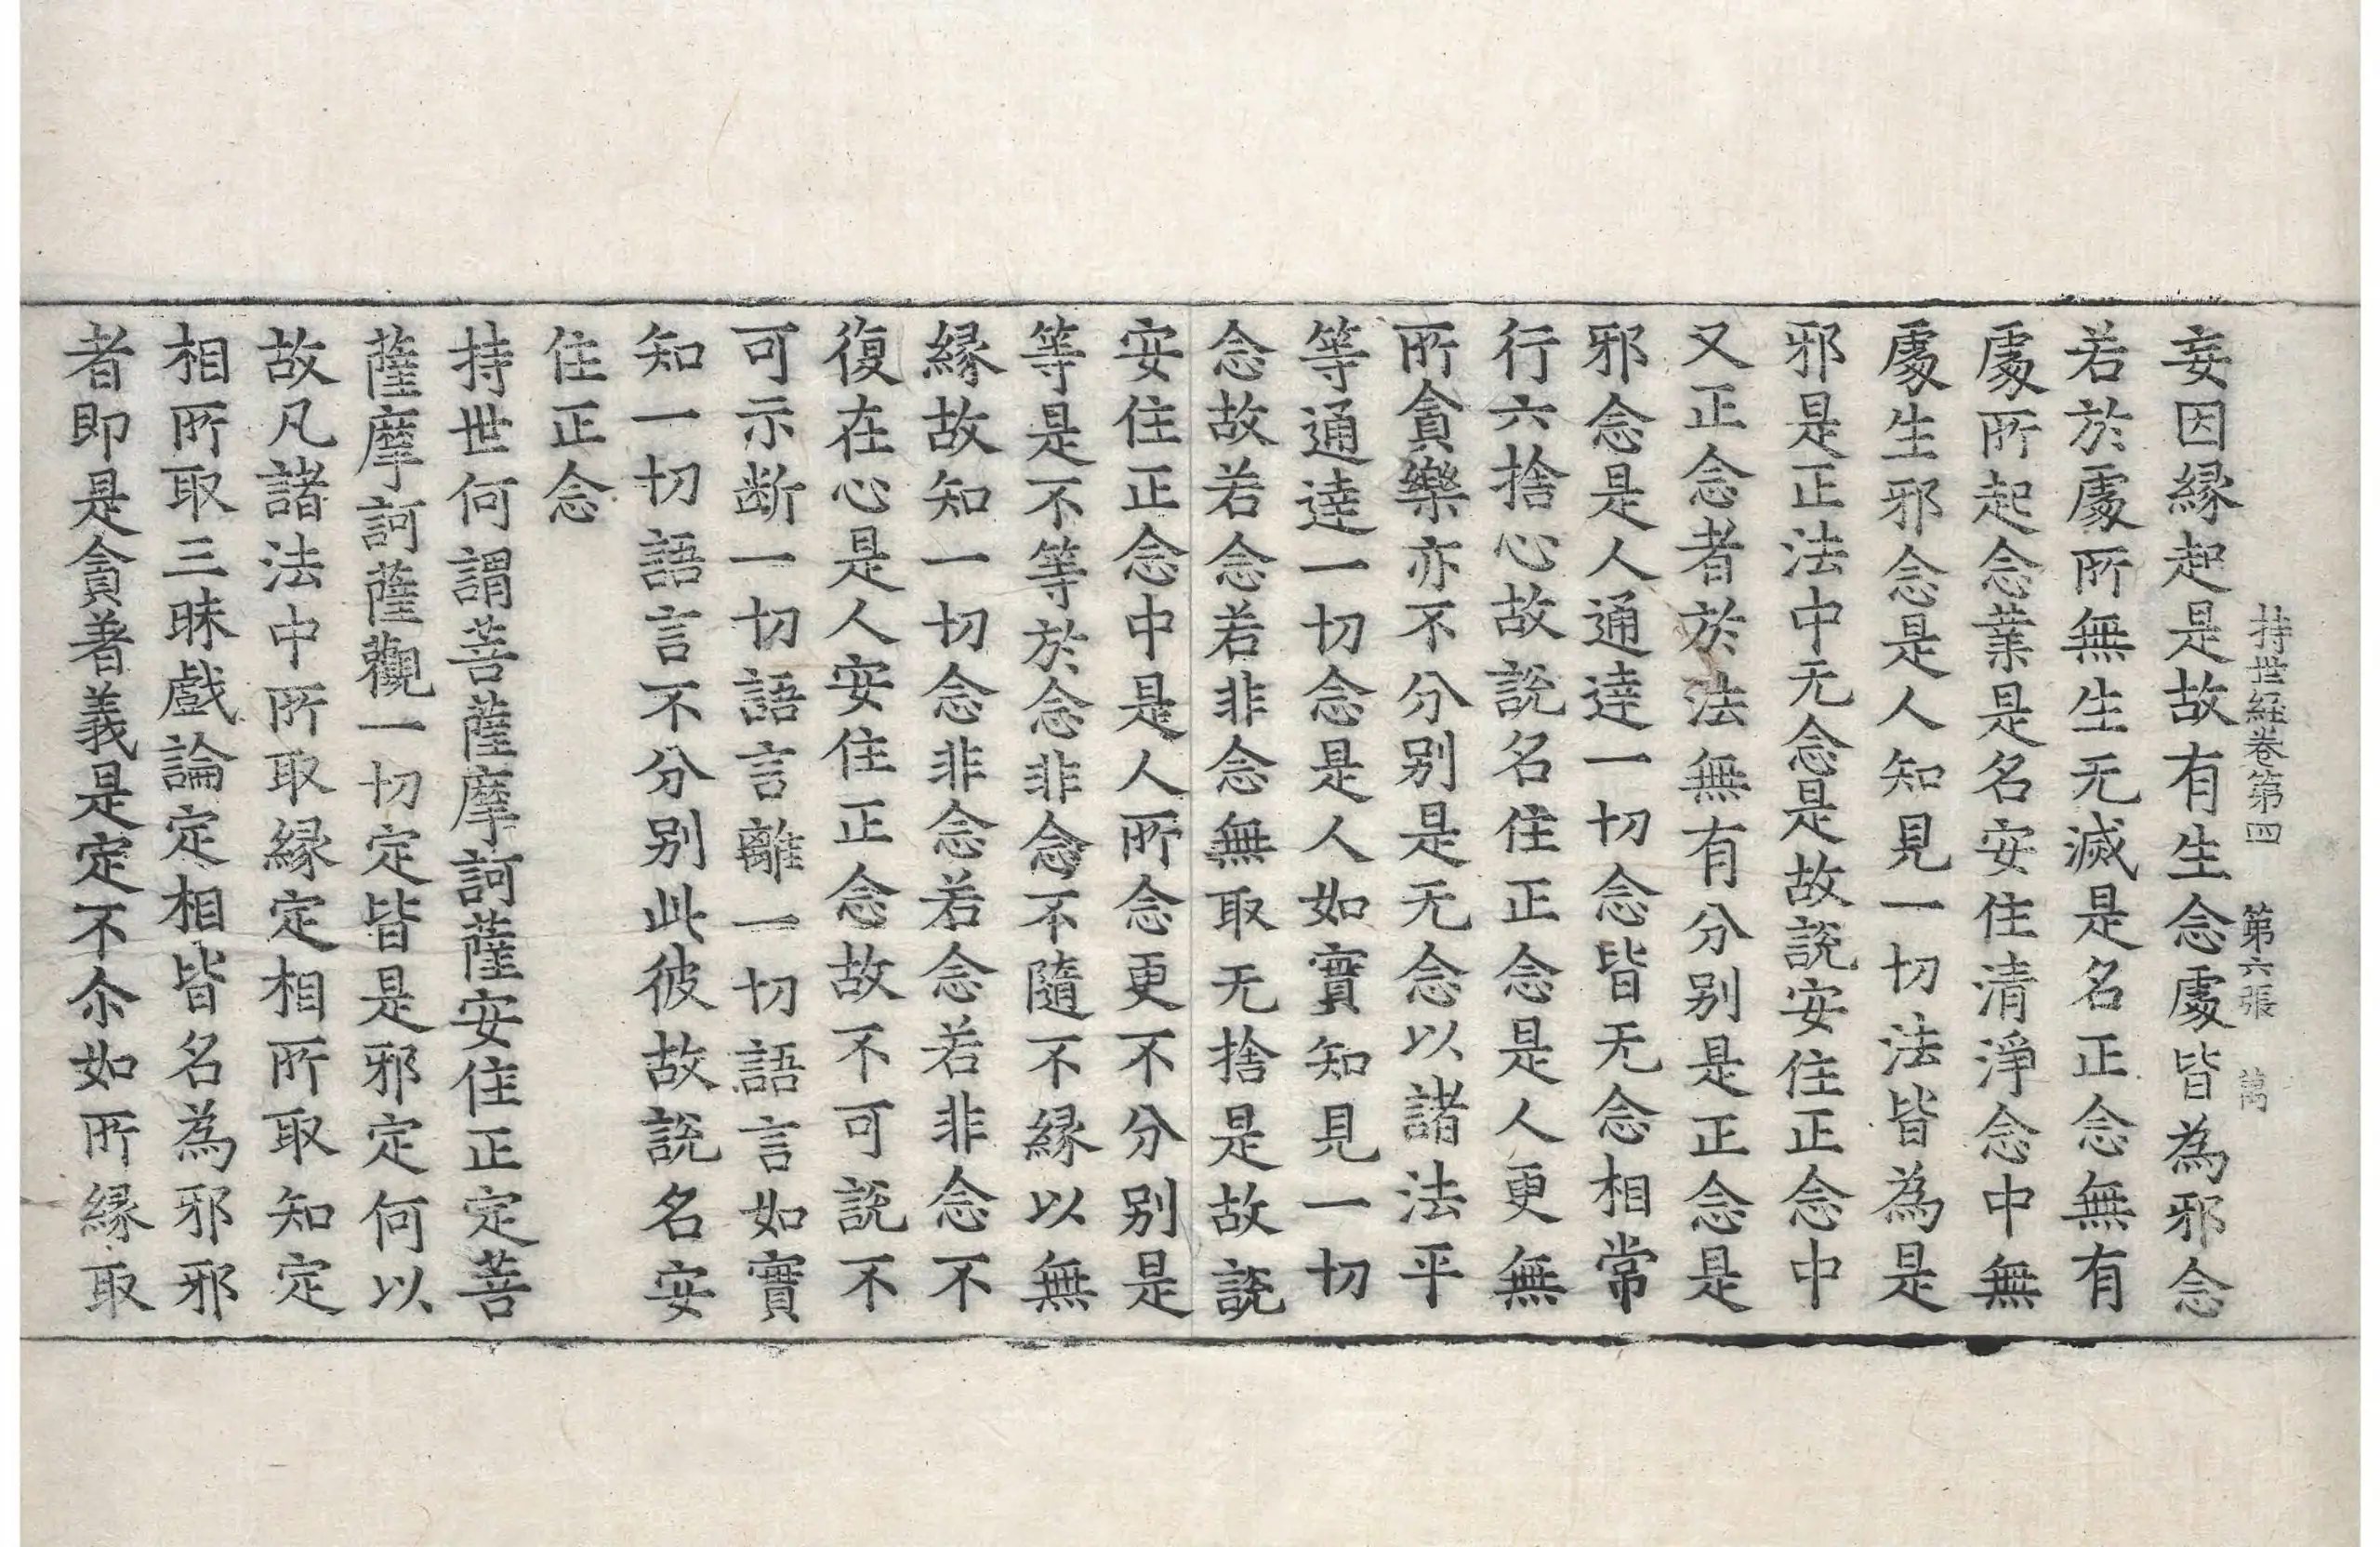 持世経卷第四　第六張　萬
妄因縁起是故有生念處皆為邪念
若於處所無生无滅是名正念無有
處所起念業是名安住清淨念中無
處生邪念是人知見一切法皆為是
邪是正法中无念是故説安住正念中
又正念者於法無有分别是正念是
邪念是人通達一切念皆无念相常
行六捨心故説名住正念是人更無
所貪樂亦不分别是无念以諸法平
等通達一切念是人如實知見一切
念故若念若非念無取无捨是故説
安住正念中是人所念更不分别是
等是不等於念非念不隨不縁以無
縁故知一切念非念若念若非念不
復在心是人安住正念故不可説不
可示断一切語言離一切語言如實
知一切語言不分别此彼故説名安
住正念
持世何謂菩薩摩訶薩安住正定菩
薩摩訶薩觀一切定皆是邪定何以
故凡諸法中所取縁定相所取知定
相所取三昧戲論定相皆名為邪邪
者即是貪著義是定不尒如所縁取